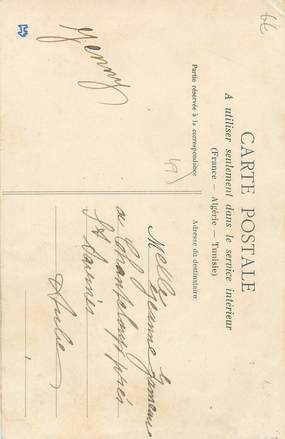 CARTE POSTALE
A utiliser seulement dans le service intérieur
(France — Algérie — Tunisie)
Partie réservée à la correspondance
Adresse du destinataire
Jenny
Melle Jeanne
à Chanteloup près
St
Aube